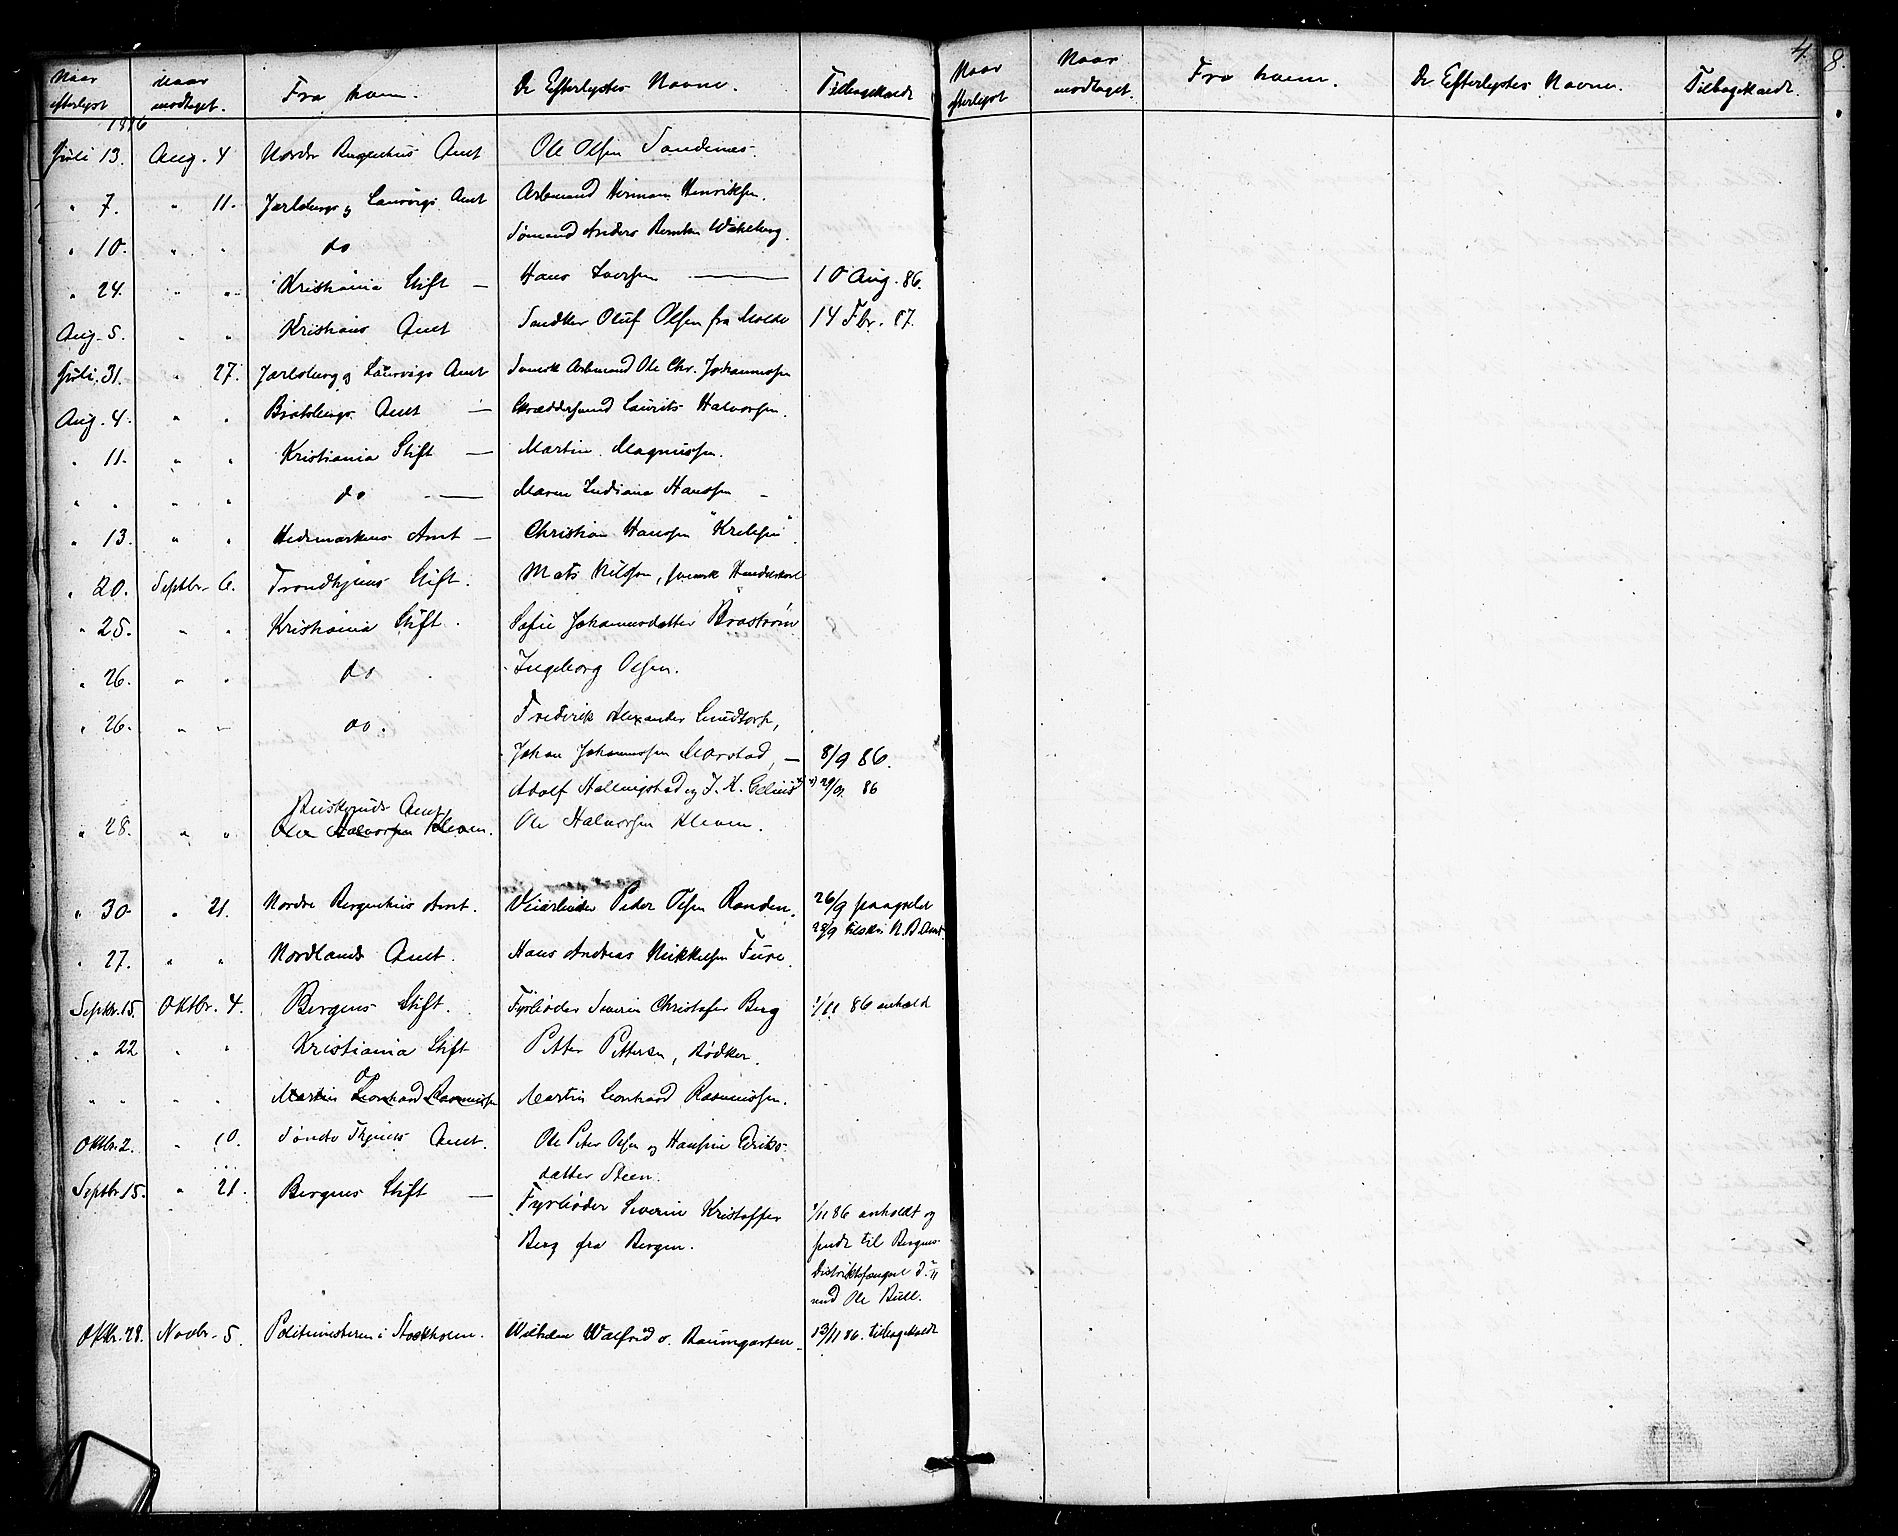 Naar efterlyst | Naar modtaget. | Fra hvem. | De Efterlystes Navne. | Tilbagekaldt
1886
Juli 13. | Aug. 4 | Nordre Bergenhus Amt | Ole Olsen Sandenes.
" 7. | " 11. | Jarlsberg og Laurvigs Amt | Arbmand Herman Henriksen.
" 10. | " " | do | Sømand Anders Berntsen
" 24. | " " | Kristiania Stift — | Hans Larsen — | 10 Aug. 86.
Aug. 5. | " " | Kristians Amt | Oluf Olsen fra Molde | 14 Fbr. 87.
Juli 31. | " 27. | Jarlsberg og Laurvigs Amt | Svensk Arbmand Ole Chr. Johannessen
Aug. 4. | " " | Bratsbergs Amt — | Skræddersvend Laurits Halvorsen.
" 11. | " " | Kristiania Stift — | Martin Magnussen.
" " | " " | do — | Maren Indiana Hanssen —
" 13. | " " | Hedemarkens Amt — | Christian Hanssen
" 20. | Septbr. 6. | Trondhjems Stift. | Mats Nilsson, svensk Handelskarl
" 25. | " " | Kristiania Stift. | Sofie Johannesdatter Brostrøm
" 26. | " " | do | Ingeborg Olsen.
" 26. | " " | do. | Frederik Alexander
Johan Johannessen — | 8/9 86.
Adolf Hallingstad og J. K. Gelius x) | x) 29/9. 86
" 28. | " " | Buskeruds Amt | Ole Halvorsen Kleven.
Ole Halvorsen Kleven.
" 30. | " 21. | Nordre Bergenhus Amt. | Veiarbeider Peder Olsen Randen. | 26/9 paagrebet
28/9 N. B. Amt.
" 27. | " " | Nordlands Amt. | Hans Andreas Mikkelsen Fure.
Septbr. 15. | Oktbr. 4. | Bergens Stift. | Fyrbøder Severin Christofer Berg | 1/11 86 anholdt
" 22 | " " | Kristiania Stift | Petter Pettersen, Bødker.
do
" " | " " | Martin Leonhard Rasmussen | Martin Leonhard Rasmussen.
Oktbr. 2. | " 10. | Søndre Thjems Amt. | Ole Peter Olsen og Hansine Eriks-
datter Steen.
Septbr. 15. | " 21. | Bergens Stift — | Fyrbøder Severin Kristoffer | 1/11 86 anholdt og
Berg fra Bergen. | sendt til Bergens
Distriktsfængsel d. /11
med Ole Bull.
Oktbr. 28. | Novbr. 5. | Politimesteren i Stockholm. | Wilhelm Walfrid v. Baumgarten. | 13/11 86. tilbagekaldt
4 8.
Naar efterlyst | Naar modtaget. | Fra hvem. | De Efterlystes Navne. | Tilbagekaldt.